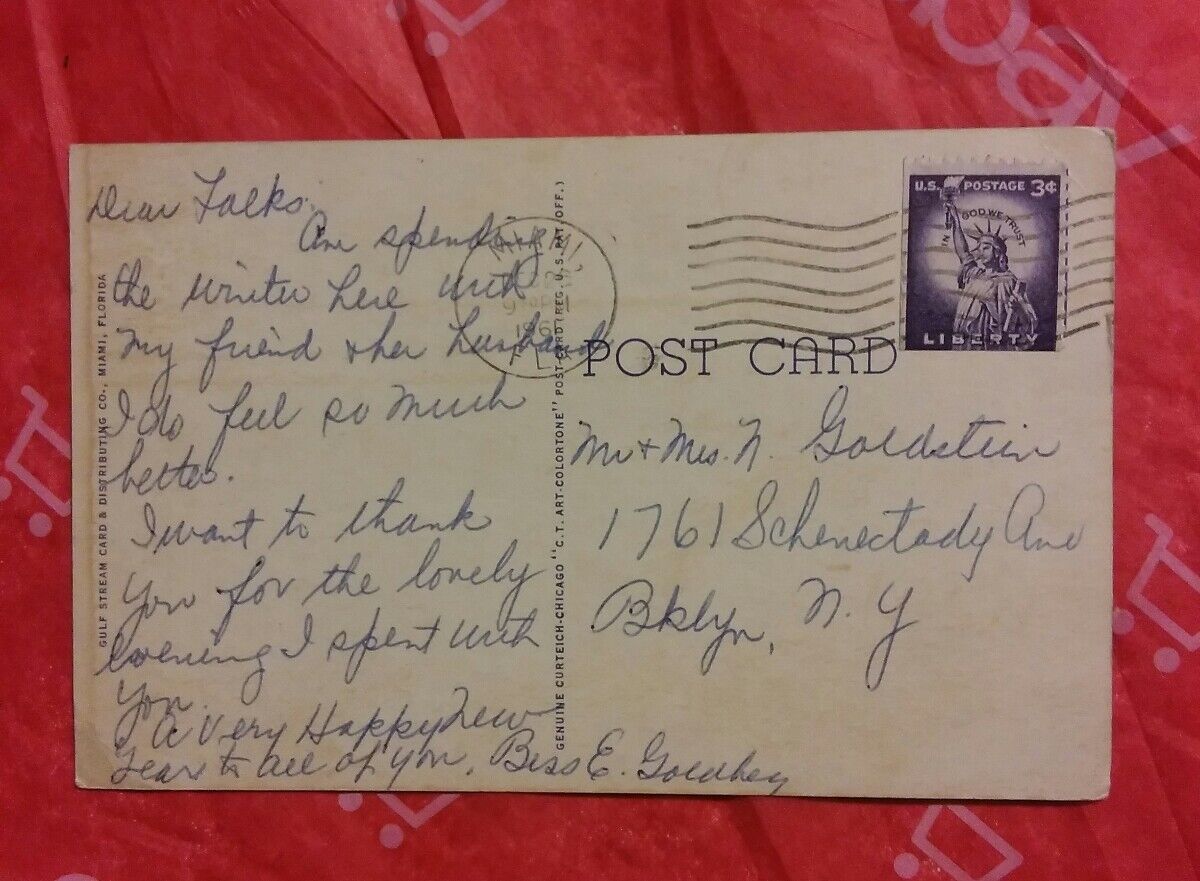 Dear Folks.
Am spending
the winter here with
my friend & her husband
I do feel so much
better.
I want to thank
You for the lovely
evening I spent with
You.
A Very Happy New
Year to all of you, Bess E.
GULF STREAM CARD & DISTRIBUTING CO., MIAMI, FLORIDA
GENUINE CURTEICH-CHICAGO "C. T. ART-COLORTONE" POST CARD (REG. U. S. PAT. OFF.)
MIAMI,
196
FLA
POST CARD
U.S. POSTAGE 3¢
IN GOD WE TRUST
LIBERTY
Mr & Mrs. N. Goldstein
1761 Schenectady Ave
Bklyn, N. Y
ebay